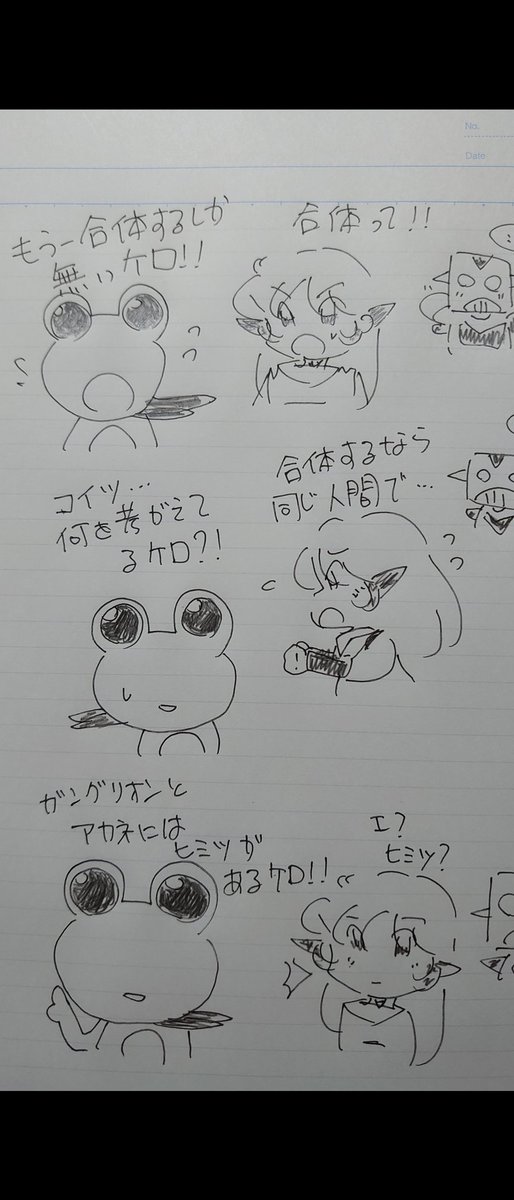 No.
Date
もうー合体するしか
無いケロ!!
合体って!!
コイツ…
何を考がえて
るケロ?!
合体するなら
同じ人間で…
ガングリオンと
アカネには
ヒミツが
あるケロ!!
エ?
ヒミツ?